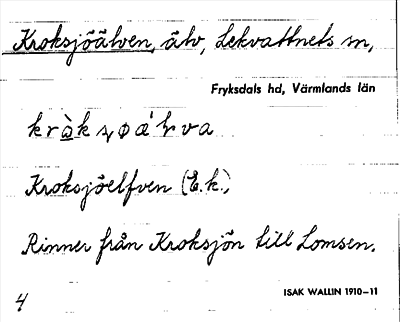 Kroksjöälven, älv, Lekvattnets sn,
Fryksdals hd, Värmlands län
Kroksjöelfven (E.k.)
Rinner från Kroksjön till Lomsen.
4
ISAK WALLIN 1910–11